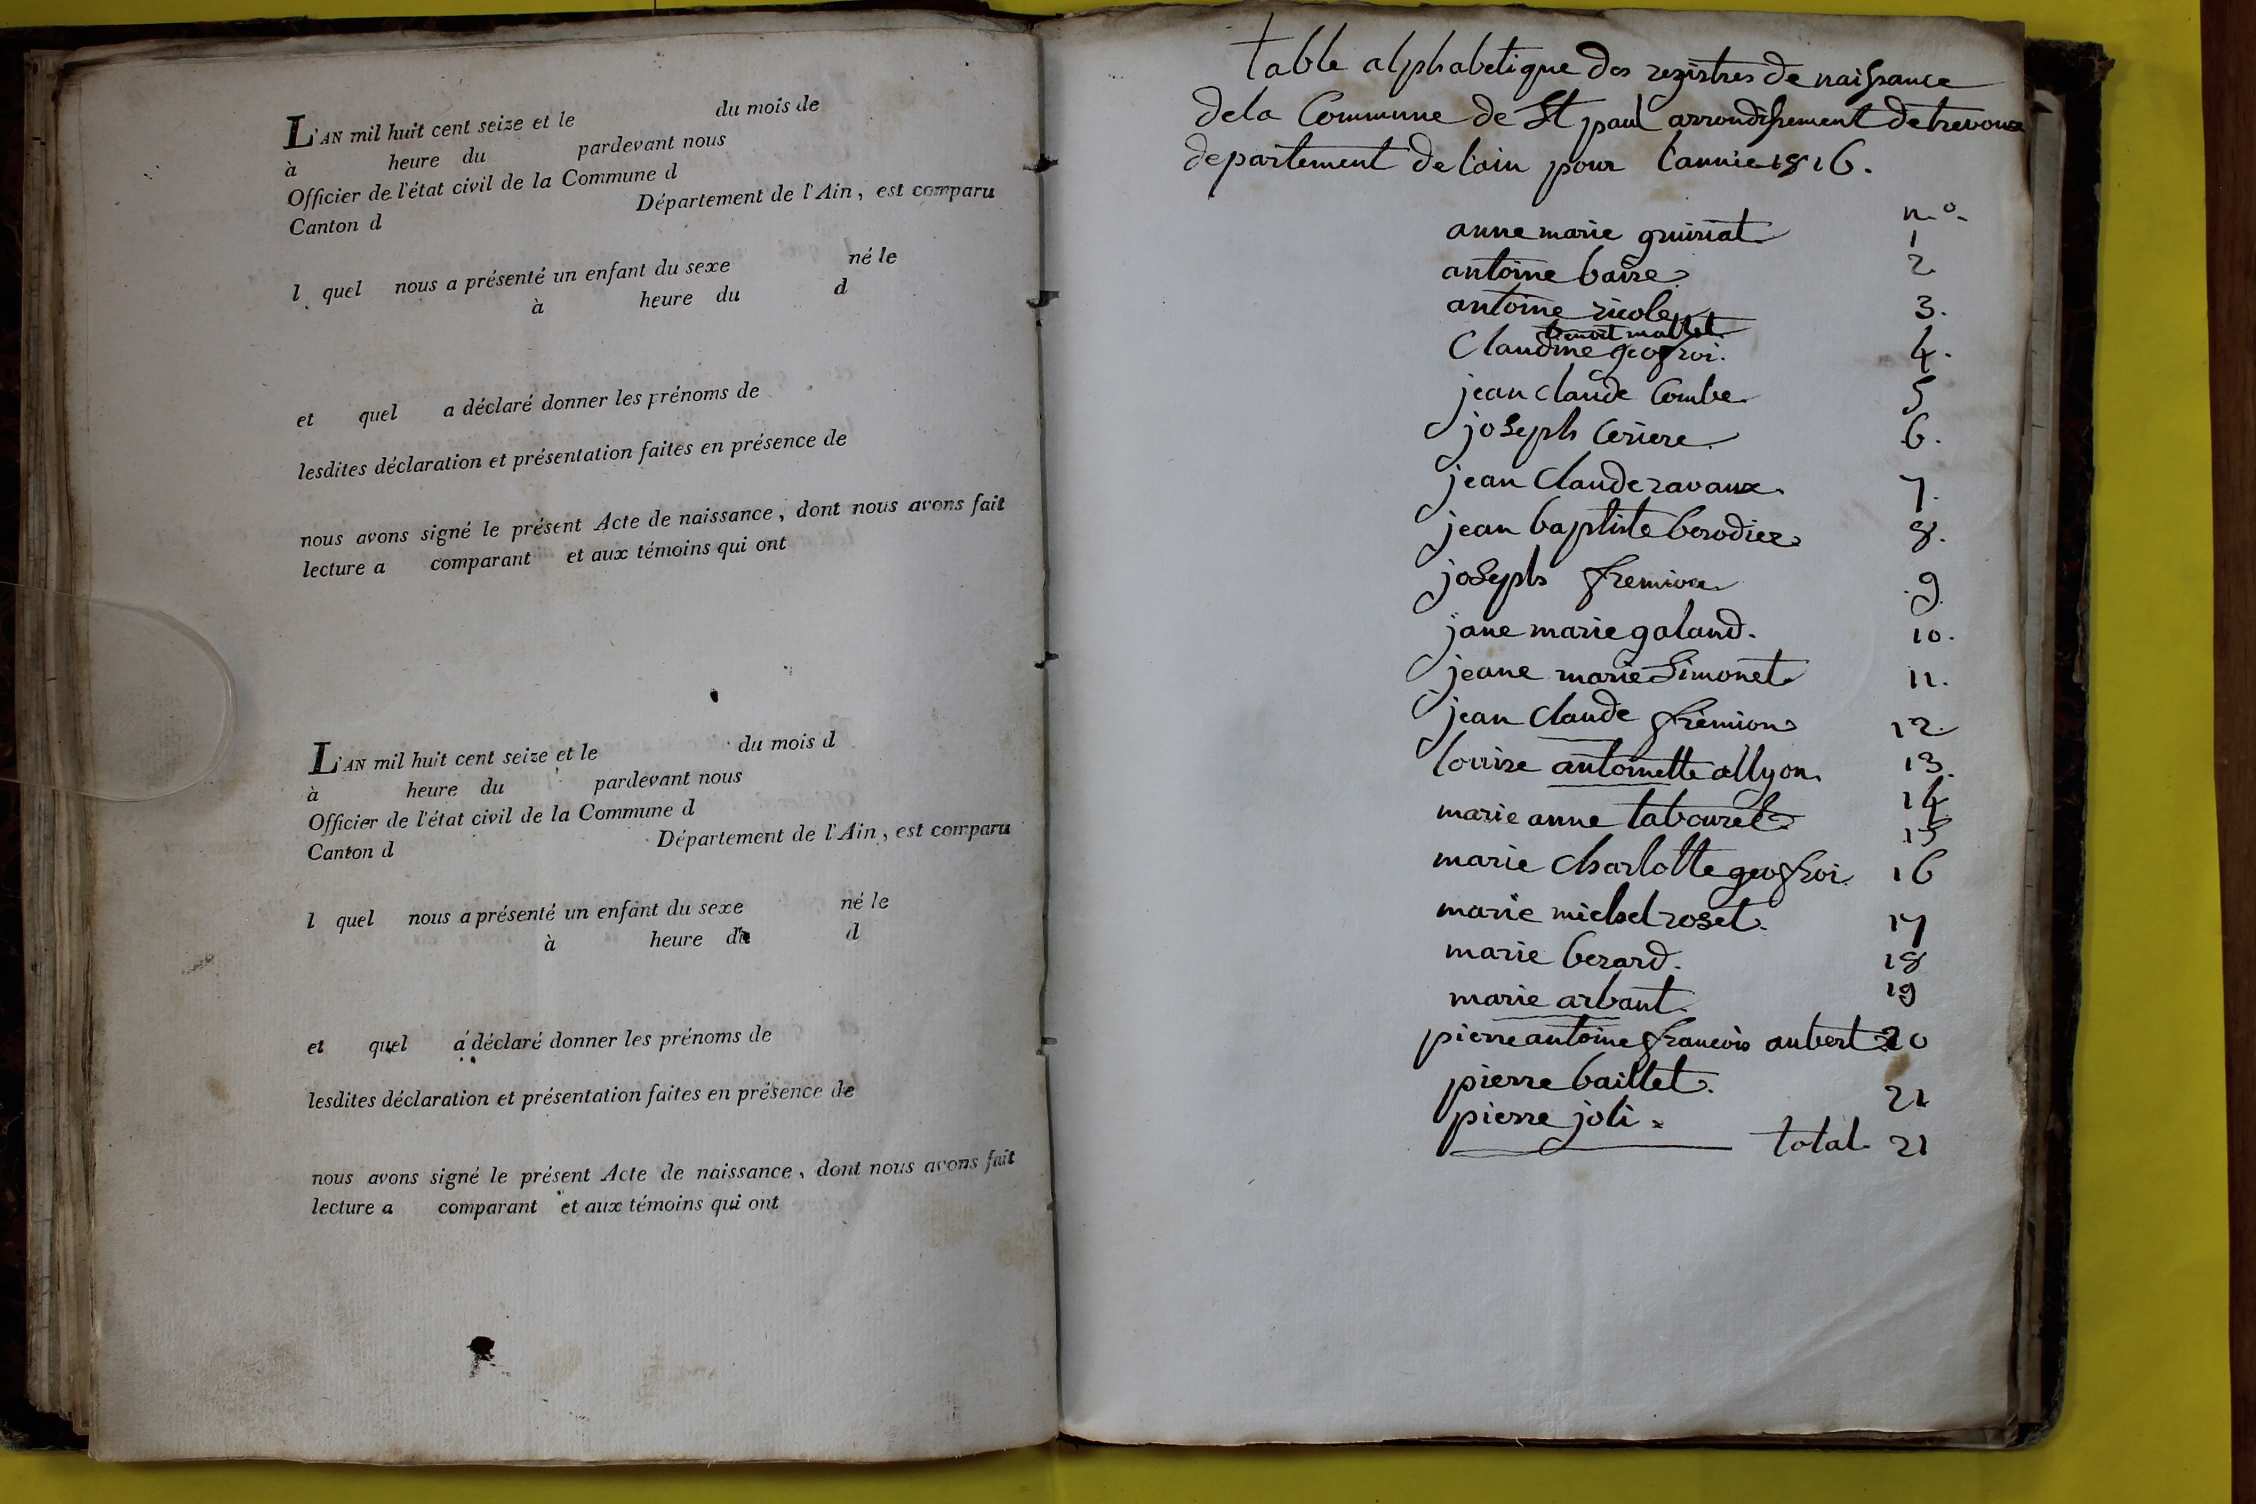 L'AN mil huit cent seize et le du mois de
à heure du pardevant nous
Officier de l'état civil de la Commune d
Canton d Département de l'Ain, est comparu
l quel nous a présenté un enfant du sexe né le
à heure du d
et quel a déclaré donner les prénoms de
lesdites déclaration et présentation faites en présence de
nous avons signé le présent Acte de naissance, dont nous avons fait
lecture a comparant et aux témoins qui ont
L'AN mil huit cent seize et le du mois d
à heure du pardevant nous
Officier de l'état civil de la Commune d
Canton d Département de l'Ain, est comparu
l quel nous a présenté un enfant du sexe né le
à heure du d
et quel a déclaré donner les prénoms de
lesdites déclaration et présentation faites en présence de
nous avons signé le présent Acte de naissance, dont nous avons fait
lecture a comparant et aux témoins qui ont
table alphabetique des registres de naissance
dela Commune de St paul arrondissement de trevoux
departement de lain pour lannie 1816.
n.o.
anne marie 1
antoine 2
antoine 3.
benoit mallet
Claudine geofroi. 4.
jean claude Combe 5
joseph Ceriere 6.
jean Claude ravaux. 7.
jean baptiste berodier 8.
joseph fremion 9.
jane marie galand. 10.
jeane marie Simonet 11.
jean Claude fremion 12.
louise antoinette allyon 13.
marie anne tabouret 14
15
marie Charlotte geofroi 16
marie michel roset. 17
marie berard. 18
marie arbant 19
pierre antoine francois aubert 20
pierre baillet. 21
pierre joli.
total 21